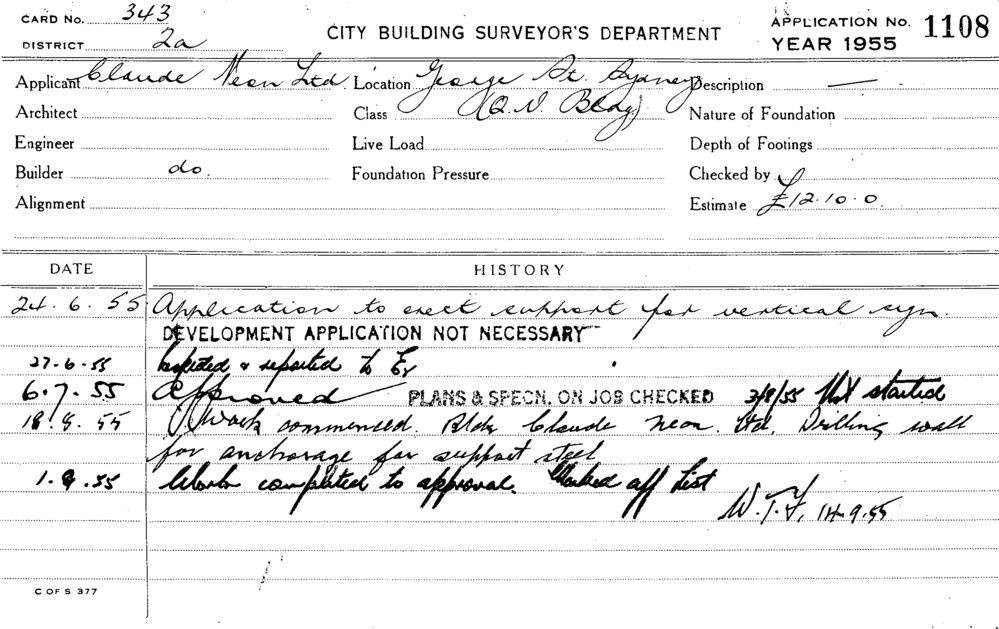 CARD No. 343
DISTRICT 2a
CITY BUILDING SURVEYOR'S DEPARTMENT
APPLICATION No. 1108
YEAR 1955
Applicant Claude Neon Ltd. Location George St. Sydney Description —
Architect Class (Q.V. Bldg) Nature of Foundation
Engineer Live Load Depth of Footings
Builder do. Foundation Pressure Checked by
Alignment Estimate £12.10.0
DATE HISTORY
24.6.55 Application to erect support for vertical sign.
DEVELOPMENT APPLICATION NOT NECESSARY
27.6.55 Inspected & reported to
6.7.55 Approved PLANS & SPECN. ON JOB CHECKED 3/8/55 Not started
18.8.55 Work commenced. Bldr Claude Neon Ltd. Drilling wall
for anchorage for support steel
1.9.55 Work completed to approval. Marked off List
W.T.F. 14.9.55
C OF S 377